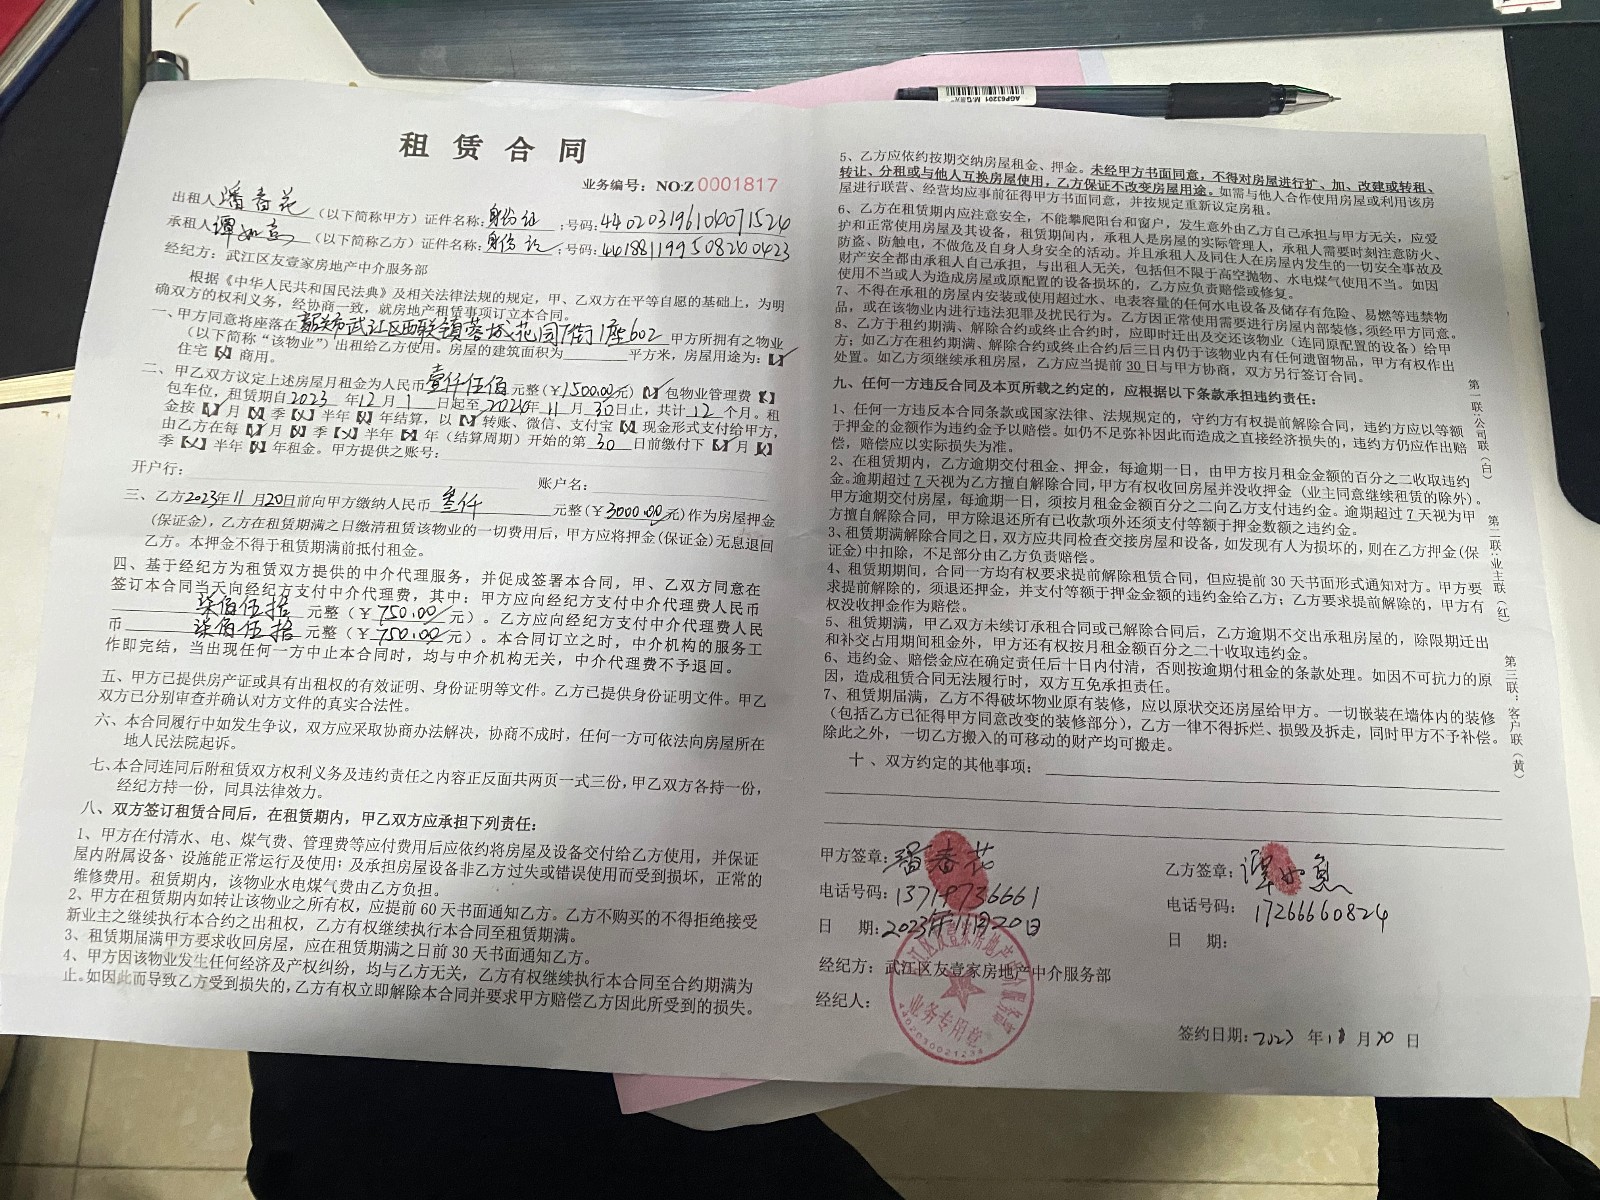 租赁合同
业务编号：NO:Z 0001817
出租人 潘春花 （以下简称甲方）证件名称：身份证；号码：440203196104071524
承租人 谭如意 （以下简称乙方）证件名称：身份证；号码：441881199508240423
经纪方：武江区友壹家房地产中介服务部
根据《中华人民共和国民法典》及相关法律法规的规定，甲、乙双方在平等自愿的基础上，为明
确双方的权利义务，经协商一致，就房地产租赁事项订立本合同。
一、甲方同意将座落在 韶关市武江区西联镇蓉城花园7街1座602 甲方所拥有之物业
（以下简称“该物业”）出租给乙方使用。房屋的建筑面积为 平方米，房屋用途为：【✓】
住宅【】商用。
二、甲乙双方议定上述房屋月租金为人民币 壹仟伍佰 元整（￥1500.00元）【】包物业管理费【】
包车位，租赁期自2023年12月1日起至2024年11月30日止，共计12个月。租
金按【】月【】季【】半年【】年结算，以【】转账、微信、支付宝【】现金形式支付给甲方，
由乙方在每【】月【】季【】半年【】年（结算周期）开始的第30日前缴付下【】月【】
季【】半年【】年租金。甲方提供之账号：
开户行： 账户名：
三、乙方2023年11月20日前向甲方缴纳人民币 叁仟 元整（￥3000.00元）作为房屋押金
（保证金），乙方在租赁期满之日缴清租赁该物业的一切费用后，甲方应将押金（保证金）无息退回
乙方。本押金不得于租赁期满前抵付租金。
四、基于经纪方为租赁双方提供的中介代理服务，并促成签署本合同，甲、乙双方同意在
签订本合同当天向经纪方支付中介代理费，其中：甲方应向经纪方支付中介代理费人民币
柒佰伍拾 元整（￥750.00元）。乙方应向经纪方支付中介代理费人民
币 柒佰伍拾 元整（￥750.00元）。本合同订立之时，中介机构的服务工
作即完结，当出现任何一方中止本合同时，均与中介机构无关，中介代理费不予退回。
五、甲方已提供房产证或具有出租权的有效证明、身份证明等文件。乙方已提供身份证明文件。甲乙
双方已分别审查并确认对方文件的真实合法性。
六、本合同履行中如发生争议，双方应采取协商办法解决，协商不成时，任何一方可依法向房屋所在
地人民法院起诉。
七、本合同连同后附租赁双方权利义务及违约责任之内容正反面共两页一式三份，甲乙双方各持一份，
经纪方持一份，同具法律效力。
八、双方签订租赁合同后，在租赁期内，甲乙双方应承担下列责任：
1、甲方在付清水、电、煤气费、管理费等应付费用后应依约将房屋及设备交付给乙方使用，并保证
屋内附属设备、设施能正常运行及使用；及承担房屋设备非乙方过失或错误使用而受到损坏，正常的
维修费用。租赁期内，该物业水电煤气费由乙方负担。
2、甲方在租赁期内如转让该物业之所有权，应提前60天书面通知乙方。乙方不购买的不得拒绝接受
新业主之继续执行本合约之出租权，乙方有权继续执行本合同至租赁期满。
3、租赁期届满甲方要求收回房屋，应在租赁期满之日前30天书面通知乙方。
4、甲方因该物业发生任何经济及产权纠纷，均与乙方无关，乙方有权继续执行本合同至合约期满为
止。如因此而导致乙方受到损失的，乙方有权立即解除本合同并要求甲方赔偿乙方因此所受到的损失。
5、乙方应依约按期交纳房屋租金、押金。未经甲方书面同意，不得对房屋进行扩、加、改建或转租、
转让、分租或与他人互换房屋使用，乙方保证不改变房屋用途。如需与他人合作使用房屋或利用该房
屋进行联营、经营均应事前征得甲方书面同意，并按规定重新议定房租。
6、乙方在租赁期内应注意安全，不能攀爬阳台和窗户，发生意外由乙方自己承担与甲方无关，应爱
护和正常使用房屋及其设备，租赁期间内，承租人是房屋的实际管理人，承租人需要时刻注意防火、
防盗、防触电，不做危及自身人身安全的活动。并且承租人及同住人在房屋内发生的一切安全事故及
财产安全都由承租人自己承担，与出租人无关，包括但不限于高空抛物、水电煤气使用不当。如因
使用不当或人为造成房屋或原配置的设备损坏的，乙方应负责赔偿或修复。
7、不得在承租的房屋内安装或使用超过水、电表容量的任何水电设备及储存有危险、易燃等违禁物
品，或在该物业内进行违法犯罪及扰民行为。乙方因正常使用需要进行房屋内部装修，须经甲方同意。
8、乙方于租约期满、解除合约或终止合约时，应即时迁出及交还该物业（连同原配置的设备）给甲
方；如乙方在租约期满、解除合约或终止合约后三日内仍于该物业内有任何遗留物品，甲方有权作出
处置。如乙方须继续承租房屋，乙方应当提前30日与甲方协商，双方另行签订合同。
九、任何一方违反合同及本页所载之约定的，应根据以下条款承担违约责任：
1、任何一方违反本合同条款或国家法律、法规规定的，守约方有权提前解除合同，违约方应以等额
于押金的金额作为违约金予以赔偿。如仍不足弥补因此而造成之直接经济损失的，违约方仍应作出赔
偿，赔偿应以实际损失为准。
2、在租赁期内，乙方逾期交付租金、押金，每逾期一日，由甲方按月租金金额的百分之二收取违约
金。逾期超过7天视为乙方擅自解除合同，甲方有权收回房屋并没收押金（业主同意继续租赁的除外）。
甲方逾期交付房屋，每逾期一日，须按月租金金额百分之二向乙方支付违约金。逾期超过7天视为甲
方擅自解除合同，甲方除退还所有已收款项外还须支付等额于押金数额之违约金。
3、租赁期满解除合同之日，双方应共同检查交接房屋和设备，如发现有人为损坏的，则在乙方押金（保
证金）中扣除，不足部分由乙方负责赔偿。
4、租赁期期间，合同一方均有权要求提前解除租赁合同，但应提前30天书面形式通知对方。甲方要
求提前解除的，须退还押金，并支付等额于押金金额的违约金给乙方；乙方要求提前解除的，甲方有
权没收押金作为赔偿。
5、租赁期满，甲乙双方未续订承租合同或已解除合同后，乙方逾期不交出承租房屋的，除限期迁出
和补交占用期间租金外，甲方还有权按月租金额百分之二十收取违约金。
6、违约金、赔偿金应在确定责任后十日内付清，否则按逾期付租金的条款处理。如因不可抗力的原
因，造成租赁合同无法履行时，双方互免承担责任。
7、租赁期届满，乙方不得破坏物业原有装修，应以原状交还房屋给甲方。一切嵌装在墙体内的装修
（包括乙方已征得甲方同意改变的装修部分），乙方一律不得拆烂、损毁及拆走，同时甲方不予补偿。
除此之外，一切乙方搬入的可移动的财产均可搬走。
十、双方约定的其他事项：
甲方签章：潘春花
电话号码：13719736661
日 期：2023年11月20日
经纪方：武江区友壹家房地产中介服务部
经纪人：
乙方签章：谭如意
电话号码：17266660824
日 期：
签约日期：2023年11月20日
武江区友壹家房地产中介服务部
业务专用章
4402030021238
第一联：公司联（白）
第二联：业主联（红）
第三联：客户联（黄）
AGP63201 M&G